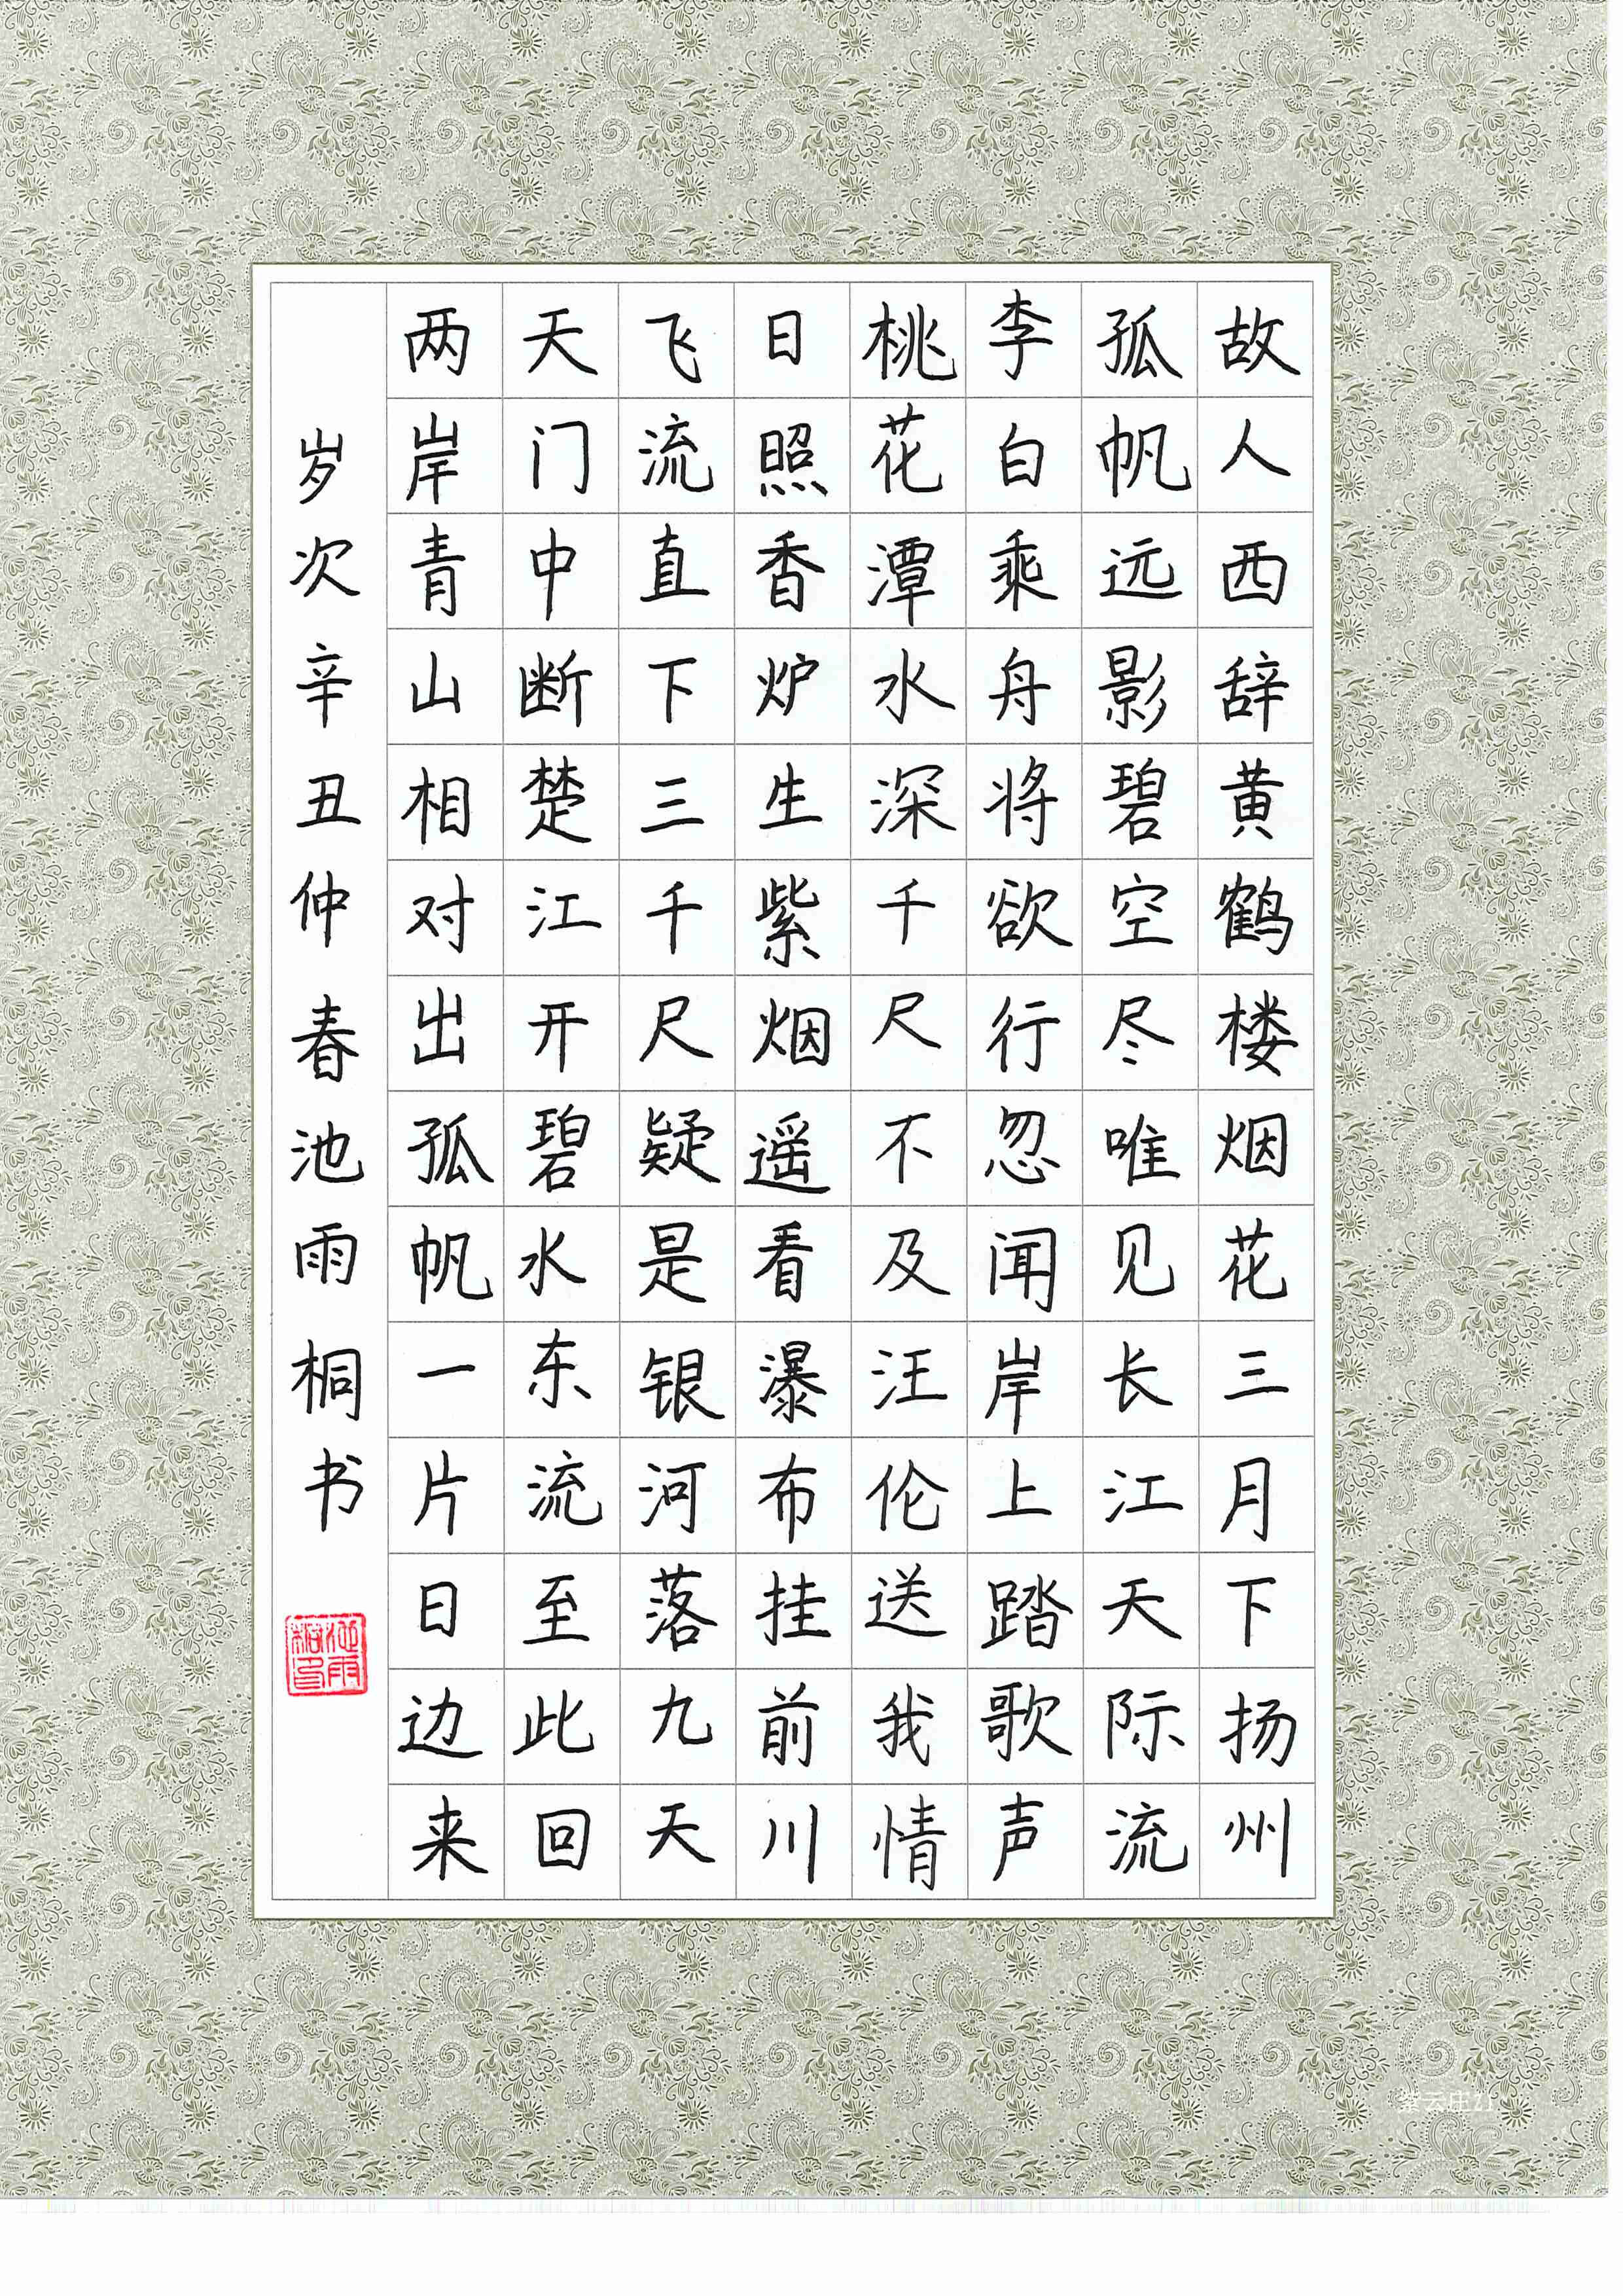 故人西辞黄鹤楼烟花三月下扬州
孤帆远影碧空尽唯见长江天际流
李白乘舟将欲行忽闻岸上踏歌声
桃花潭水深千尺不及汪伦送我情
日照香炉生紫烟遥看瀑布挂前川
飞流直下三千尺疑是银河落九天
天门中断楚江开碧水东流至此回
两岸青山相对出孤帆一片日边来
岁次辛丑仲春池雨桐书
池雨桐印